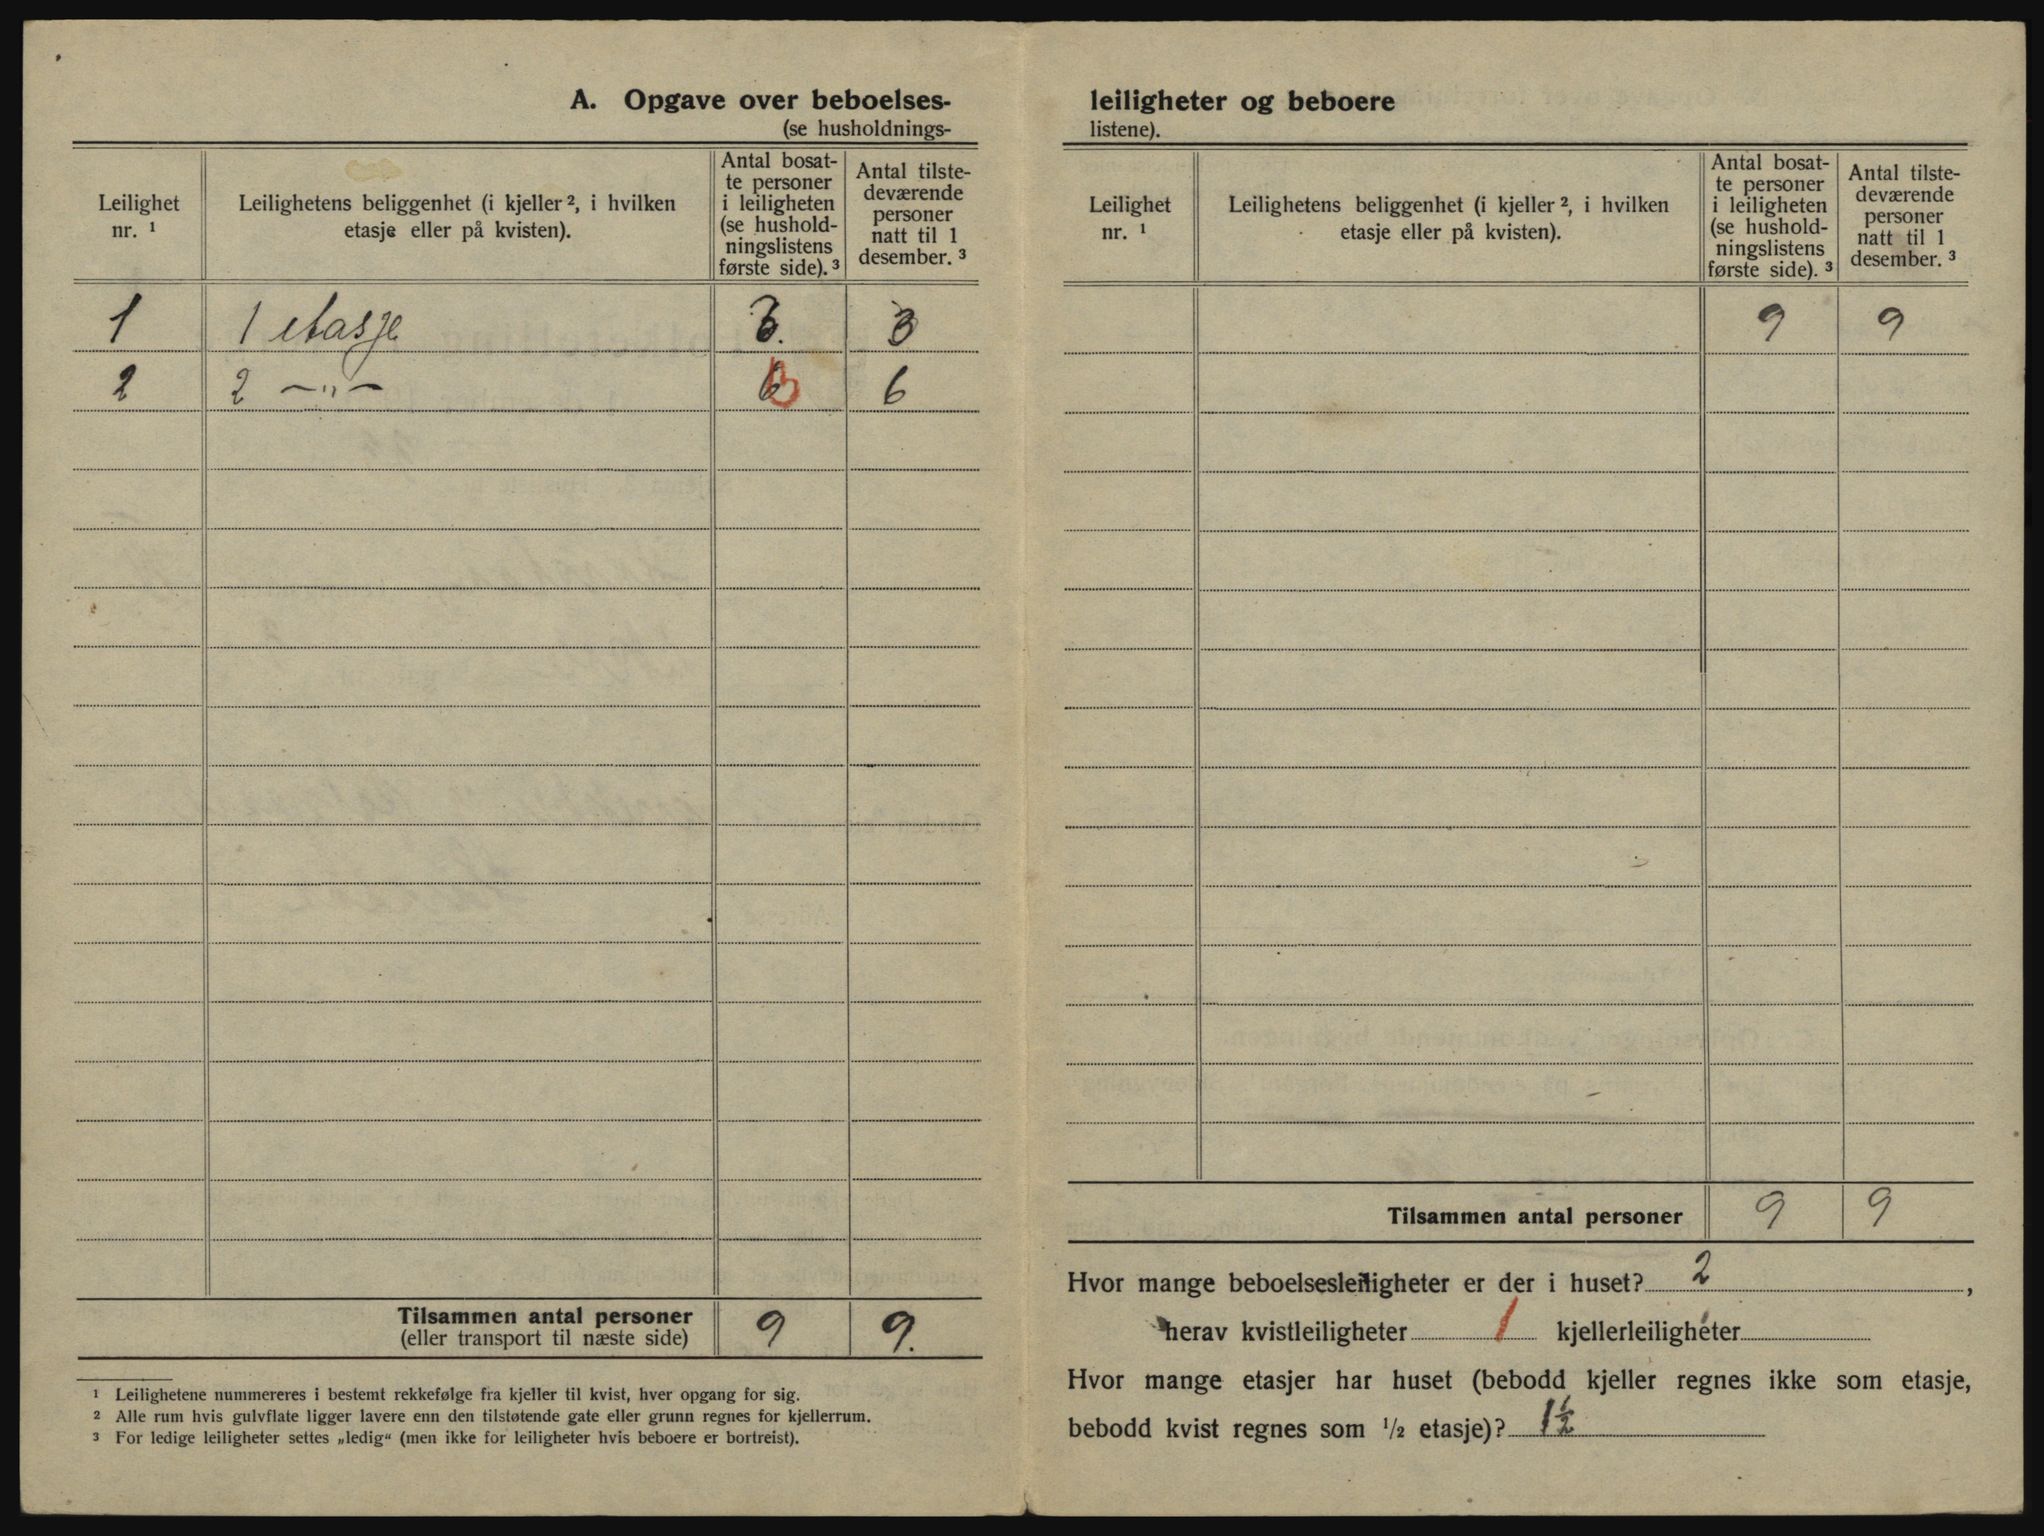 A. Opgave over beboelses-
(se husholdnings-
Leilighet nr. ¹
Leilighetens beliggenhet (i kjeller ², i hvilken etasje eller på kvisten).
Antal bosat-
te personer
i leiligheten
(se hushold-
ningslistens
første side). ³
Antal tilste-
deværende
personer
natt til 1
desember. ³
1 1 etasje 3. 3
2 2 —„— 6 6
Tilsammen antal personer
(eller transport til næste side) 9 9.
¹ Leilighetene nummereres i bestemt rekkefølge fra kjeller til kvist, hver opgang for sig.
² Alle rum hvis gulvflate ligger lavere enn den tilstøtende gate eller grunn regnes for kjellerrum.
³ For ledige leiligheter settes „ledig“ (men ikke for leiligheter hvis beboere er bortreist).
leiligheter og beboere
listene).
Leilighet nr. ¹
Leilighetens beliggenhet (i kjeller ², i hvilken etasje eller på kvisten).
Antal bosat-
te personer
i leiligheten
(se hushold-
ningslistens
første side). ³
Antal tilste-
deværende
personer
natt til 1
desember. ³
9 9
Tilsammen antal personer 9 9
Hvor mange beboelsesleiligheter er der i huset? 2,
herav kvistleiligheter 1 kjellerleiligheter
Hvor mange etasjer har huset (bebodd kjeller regnes ikke som etasje,
bebodd kvist regnes som ¹/₂ etasje)? 1½